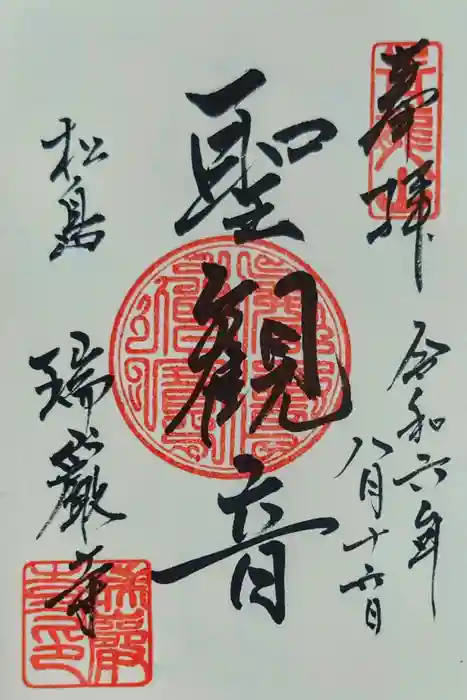 奉拝
令和六年
八月十六日
聖観音
松島
瑞巌寺